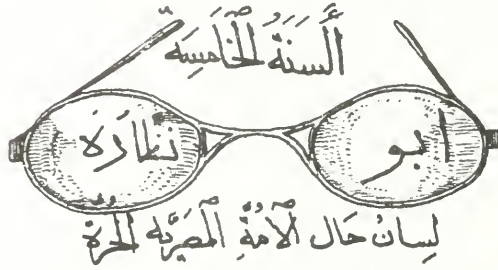 السَنَةُ الخَامَسِة
ابو نظارَة
لِسانُ حَال الْأمّةِ المصَريّه الحُرّة